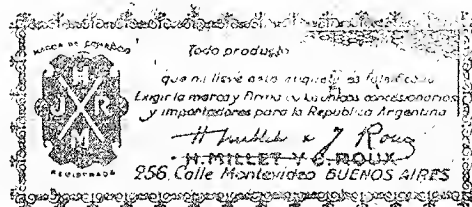 MARCA DE COMERCIO
H
J R
M
REGISTRADA
Todo producto
que no lleve esta etiqueta es falsificado
Exigir la marca y Firma de los únicos concesionarios
y importadores para la Republica Argentina
H Millet & J Roux
H. MILLET Y G. ROUX
256, Calle Montevideo BUENOS AIRES